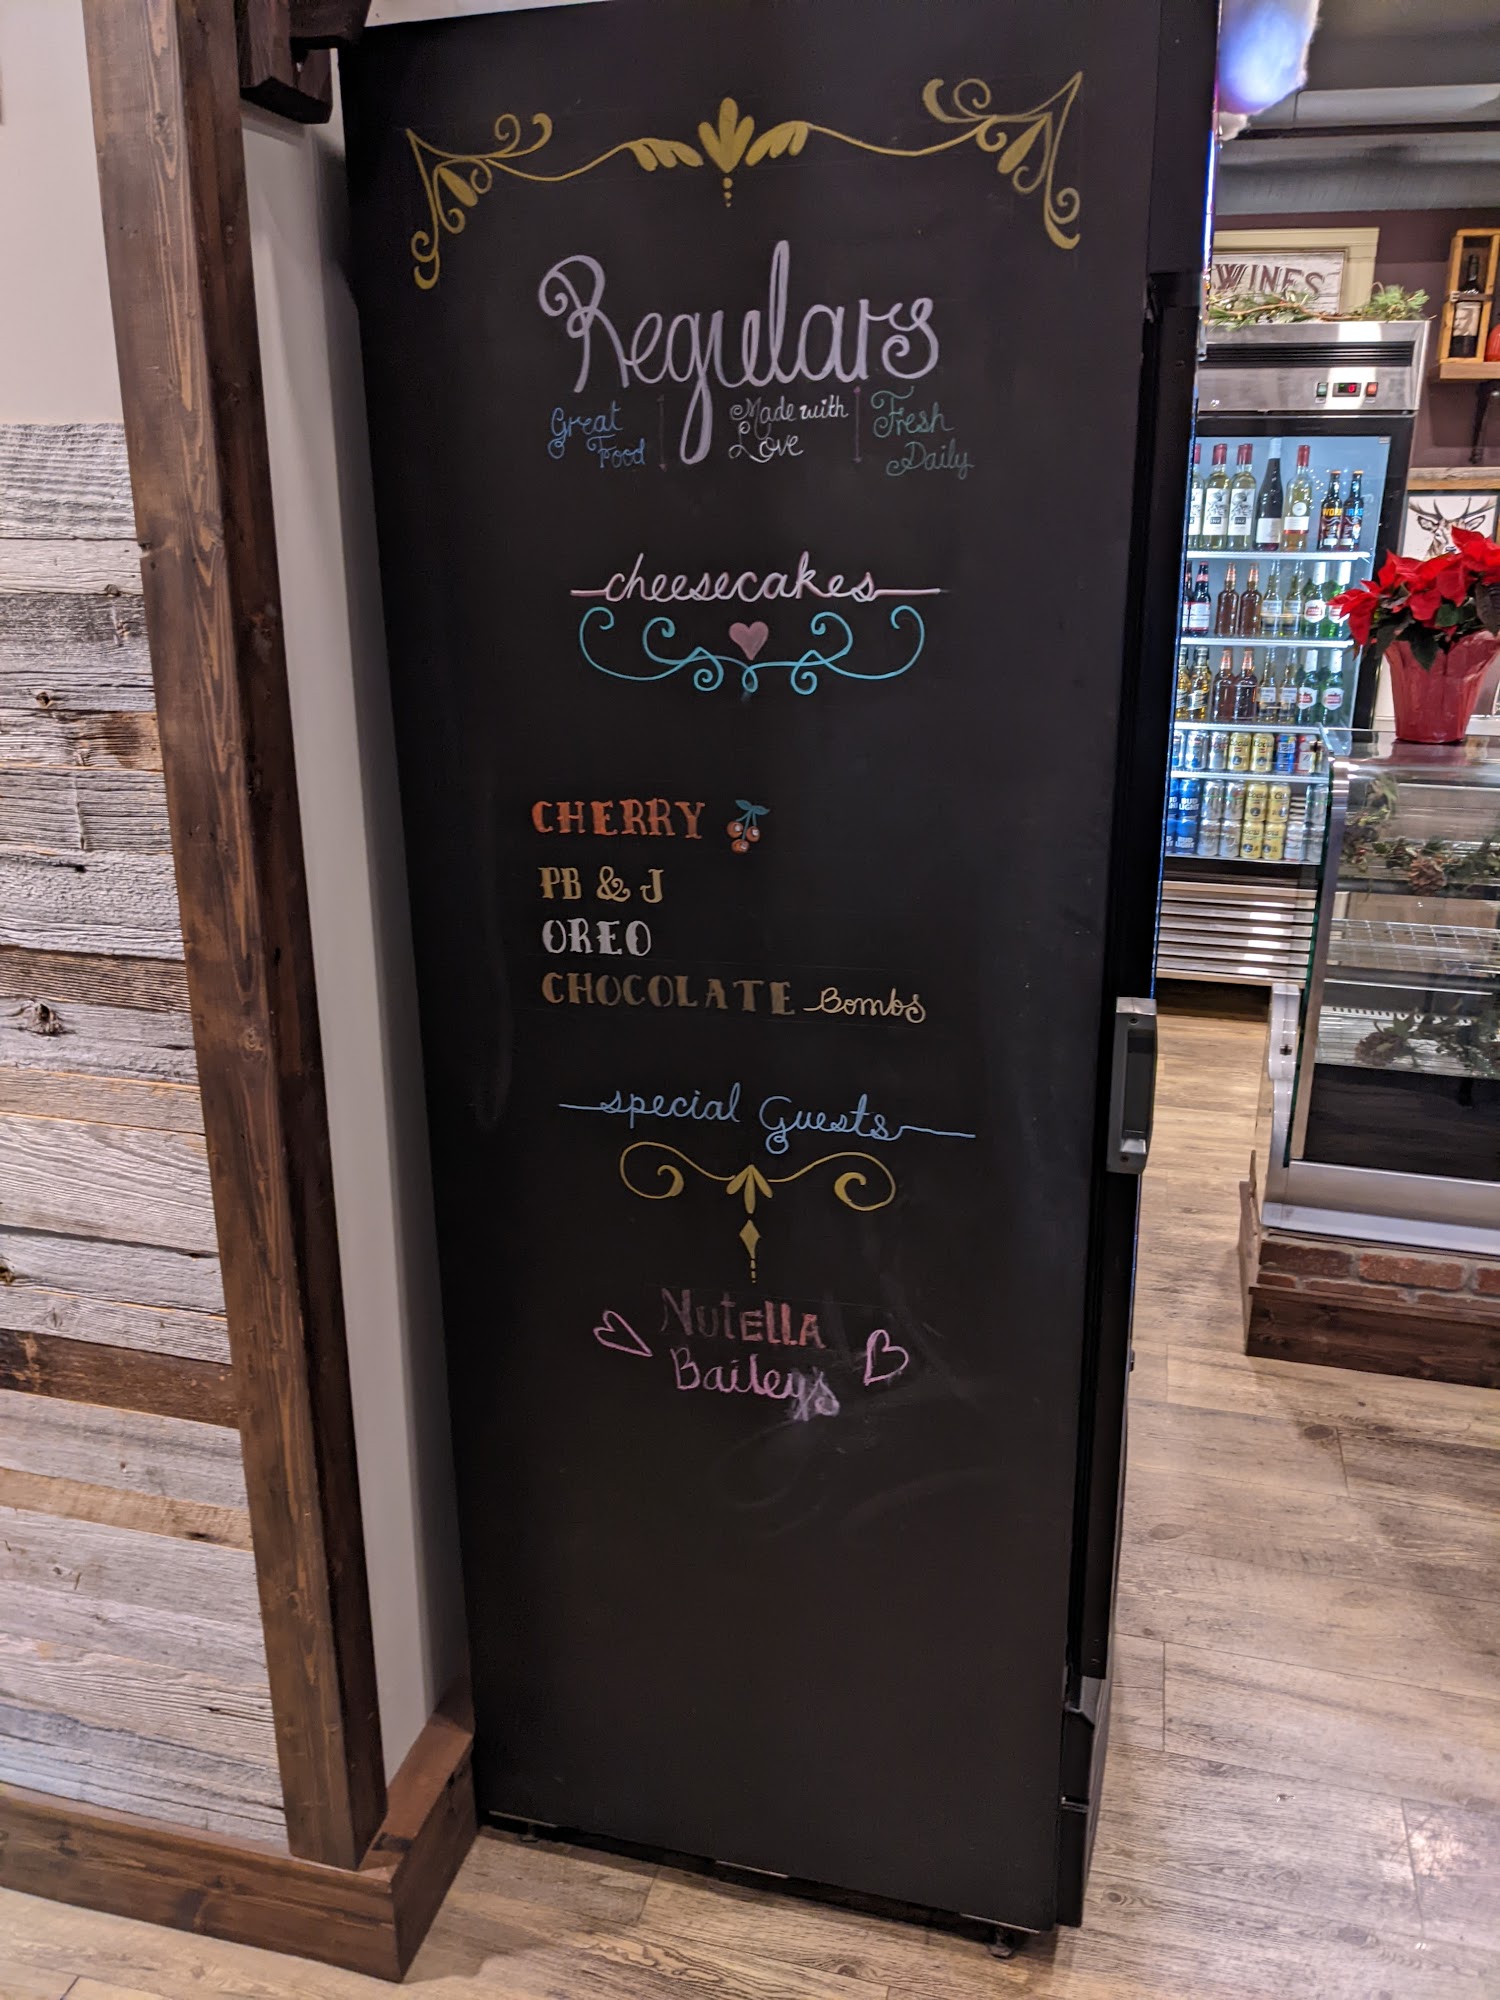 Regulars
Great Food
Made with Love
Fresh Daily
cheesecakes
CHERRY
PB & J
OREO
CHOCOLATE Bombs
special Guests
NUTELLA
Baileys
WINES
BUD LIGHT